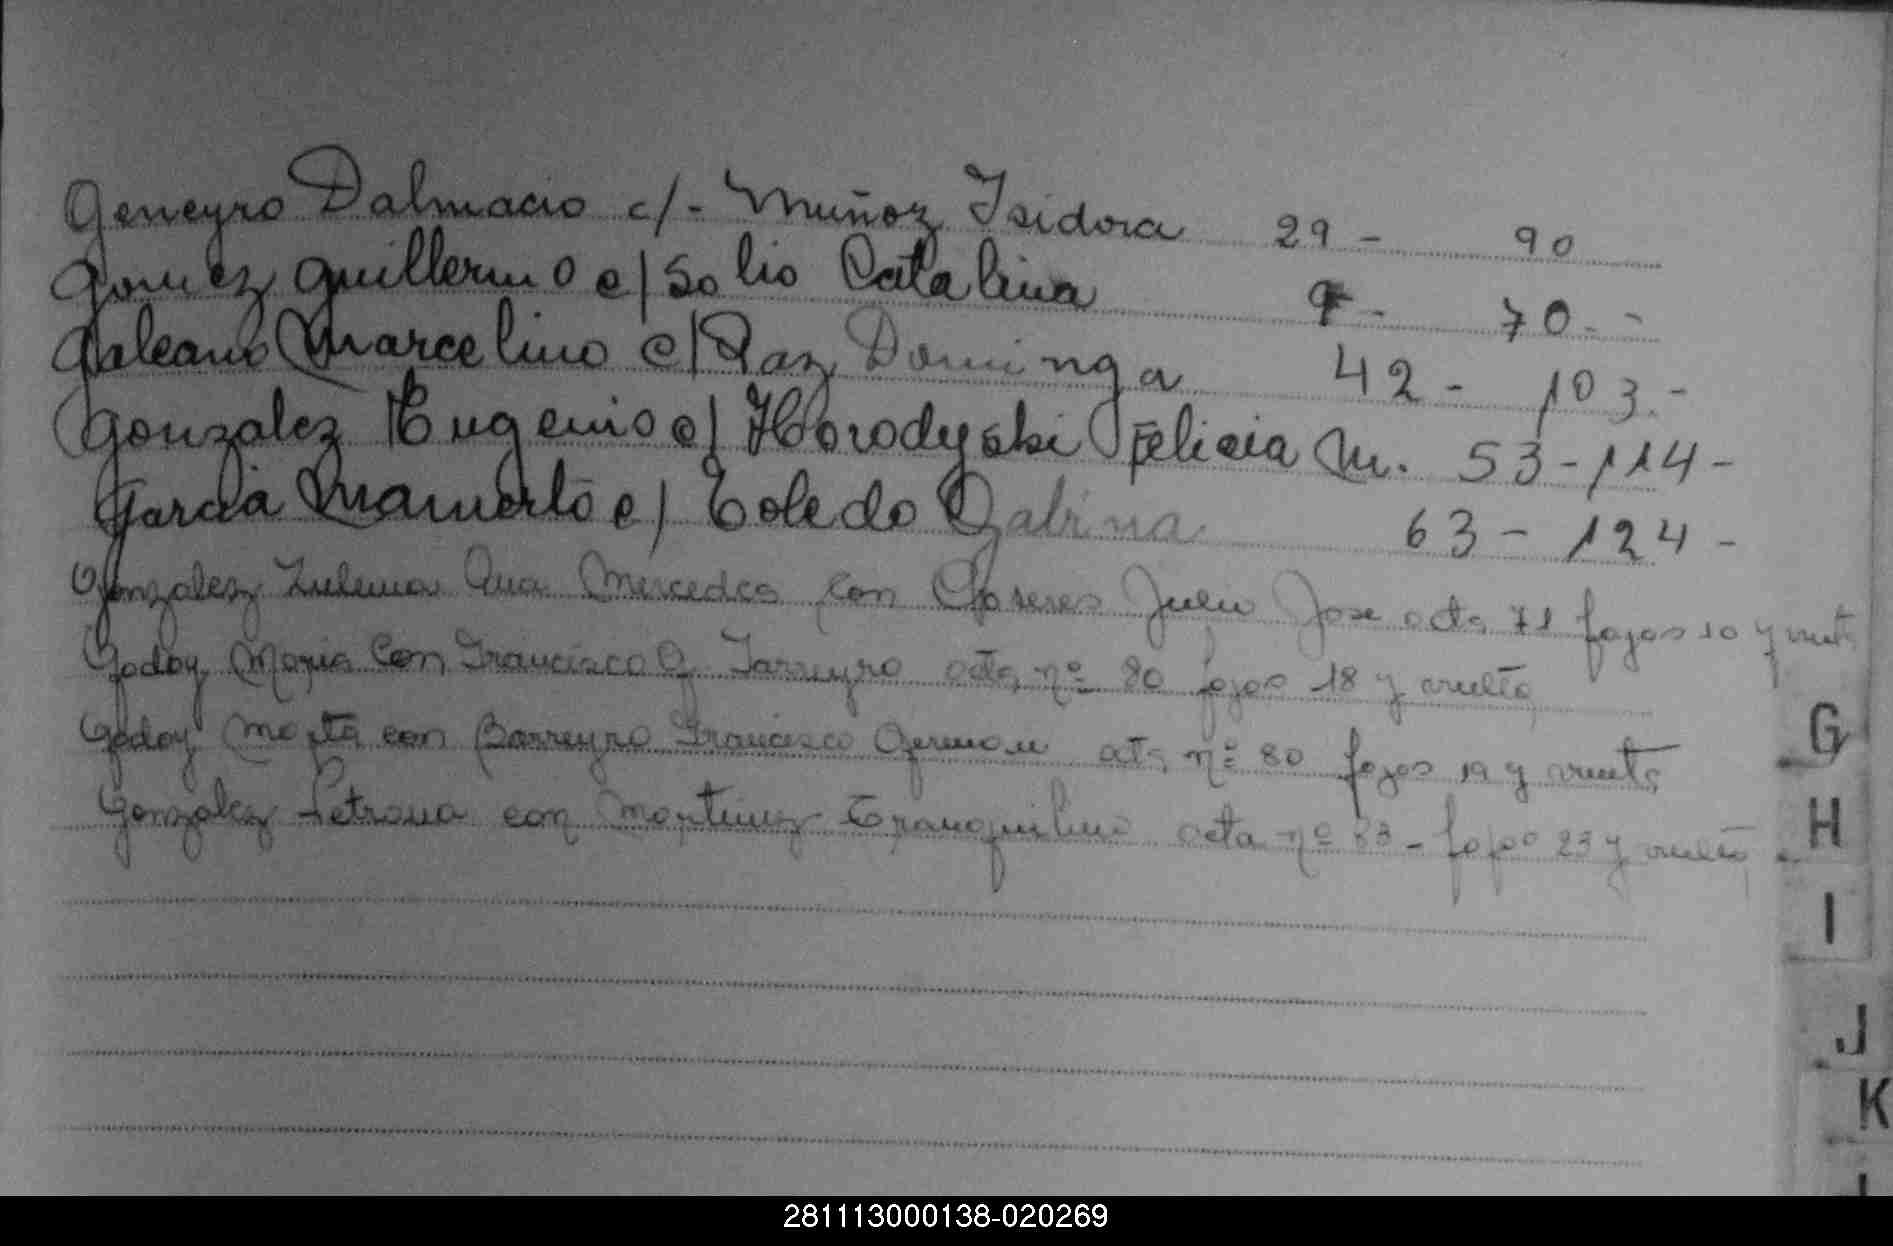 Geneyro Dalmacio c/- Muñoz Isidora 29 - 90
Gomez Guillermo c/ Solio Catalina 9 - 70. -
Galeano Marcelino c/ Paz Dominga 42 - 103. -
Gonzalez Eugenio c/ Horodyski Felicia M. 53 - 114 -
Garcia Mamerto c/ Toledo Gabina 63 - 124 -
Gonzalez Zulema Ana Mercedes con Caseres Julio Jose acta 71 fojas 10 y
Godoy Maria Con Francisco G. Tarreyro acta nº 80 fojas 18 y vuelto
Godoy Marta con Barreyro Francisco German nº 80 fojas 19 y vuelto
Gonzalez Petrona con Martinez Tranquilino acta nº 83 - fojas 23 y vuelto
G
H
I
J
K
281113000138-020269